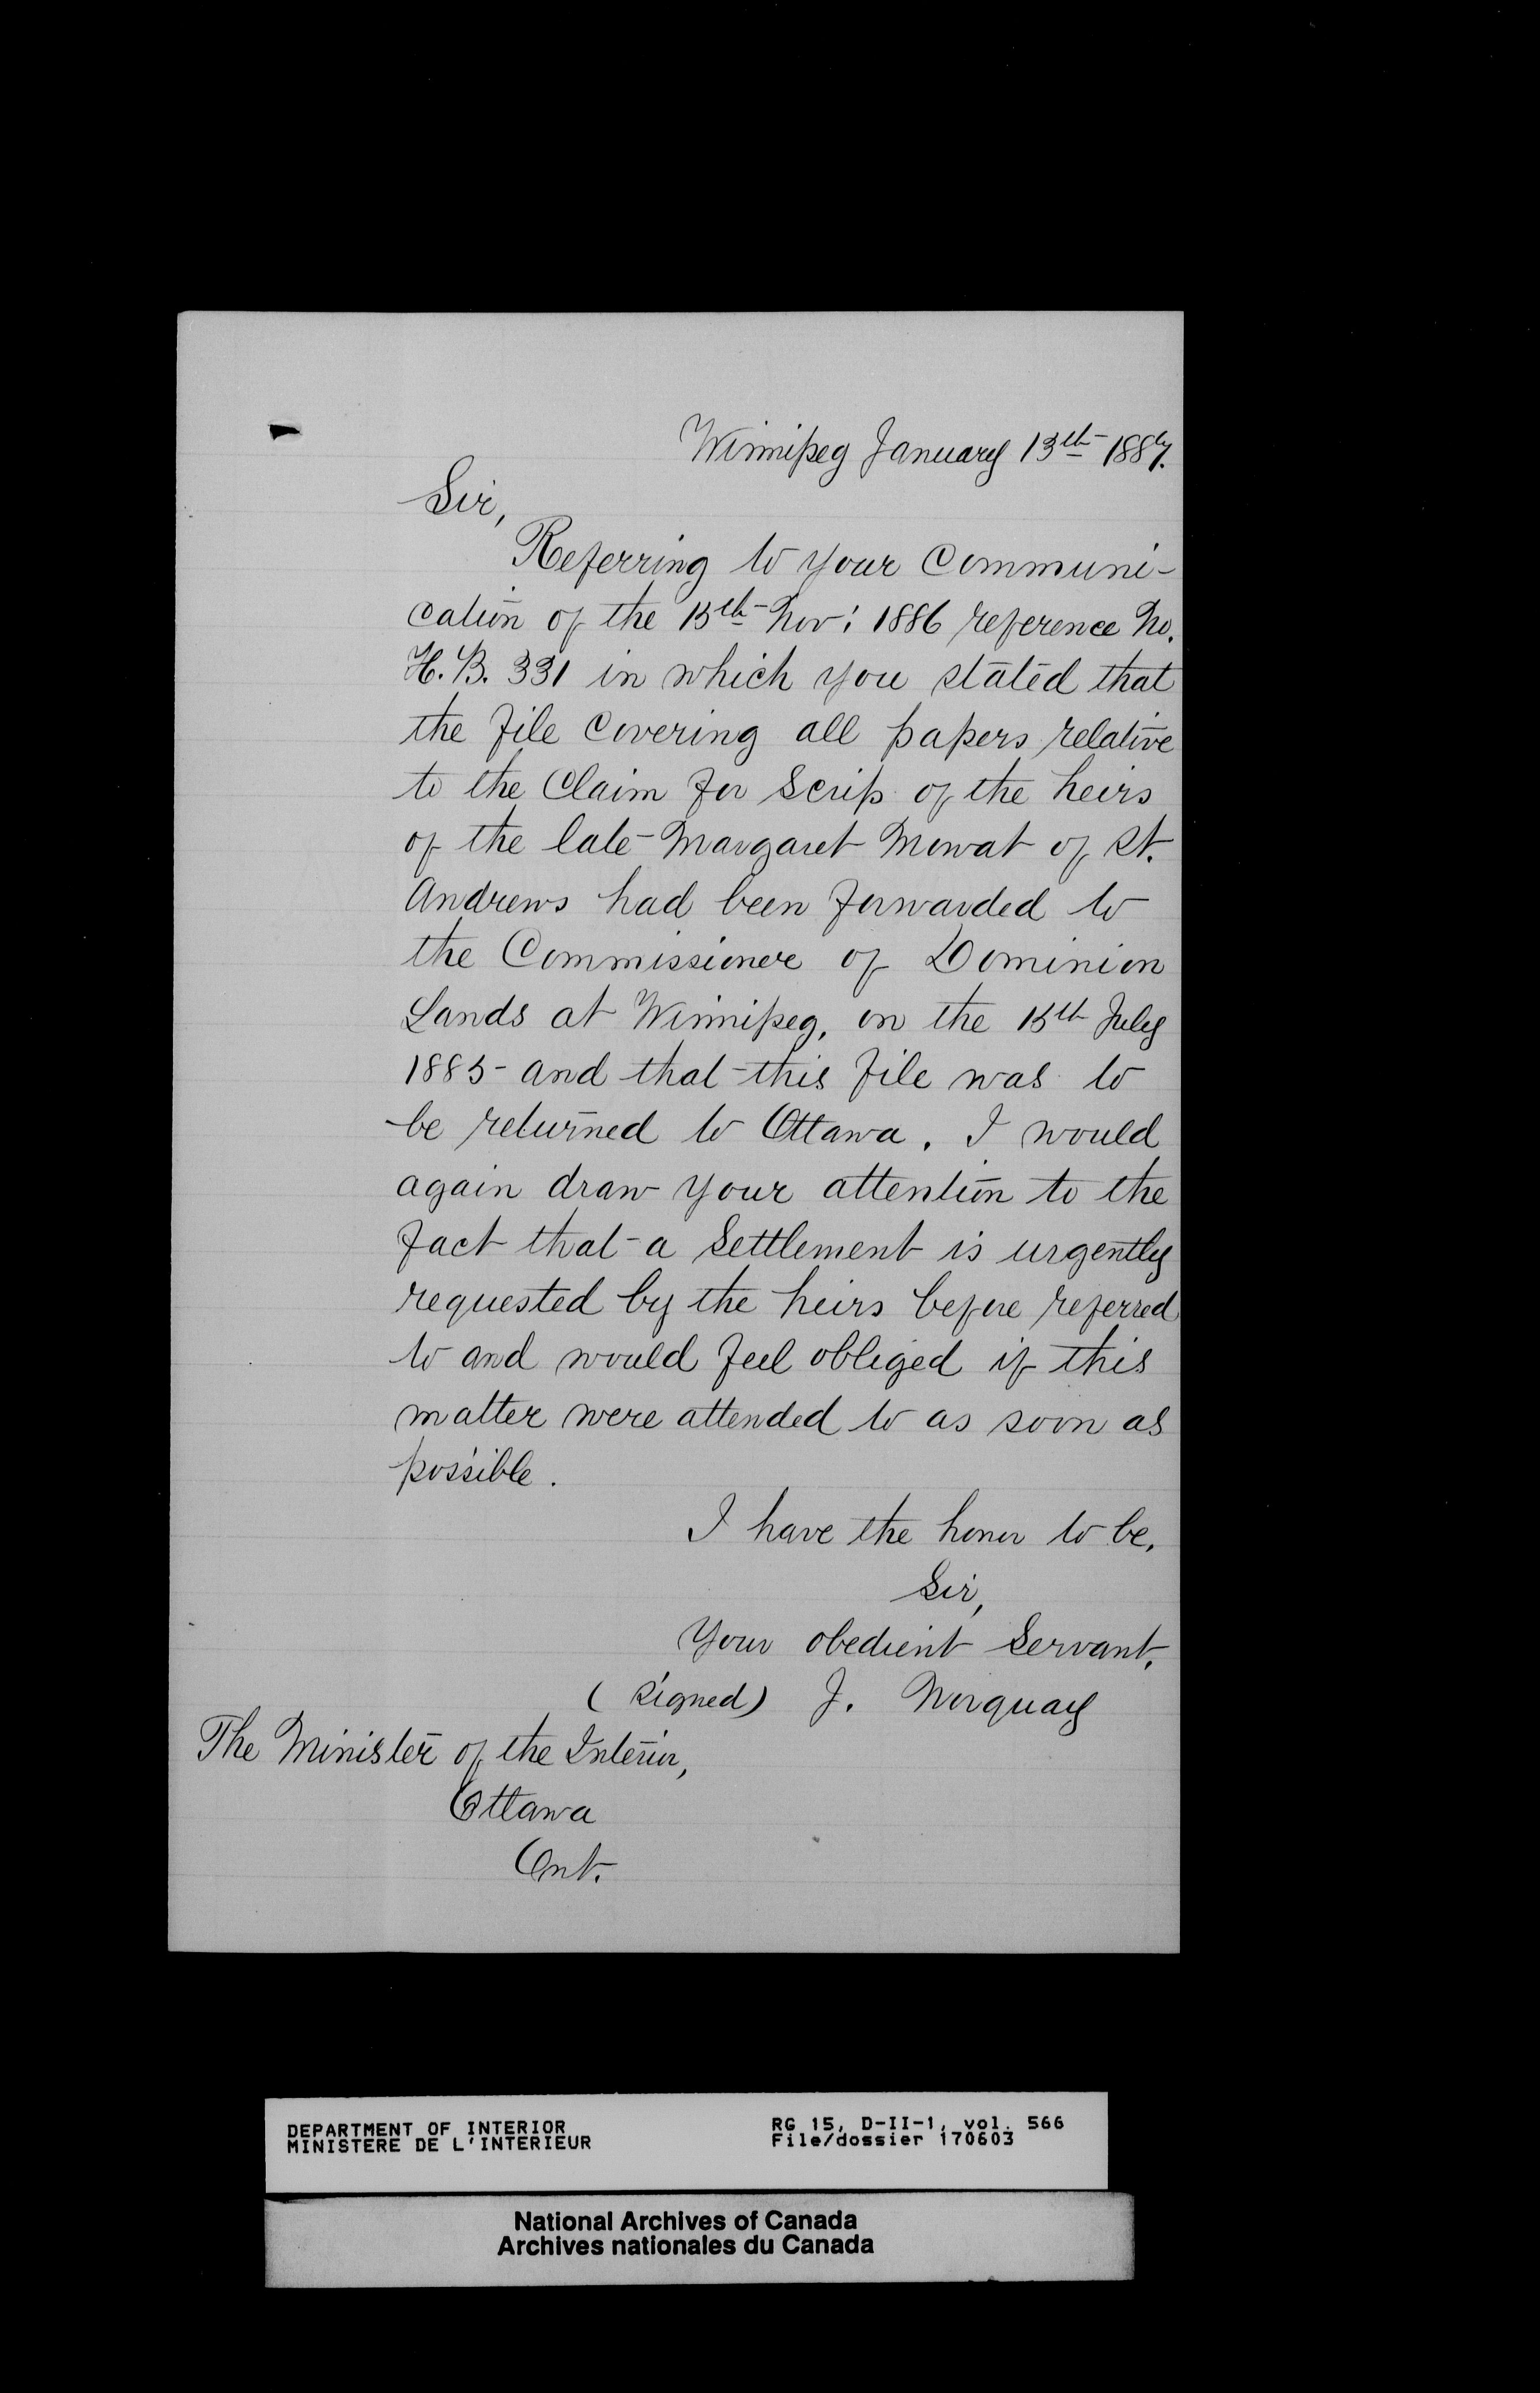 Winnipeg January 13th 1887.
Sir,
Referring to your Communi-
cation of the 15th Nov: 1886 reference No.
H.B. 331 in which you stated that
the file covering all papers relative
to the Claim for Scrip of the heirs
of the late Margaret Mowat of St.
Andrews had been forwarded to
the Commissioner of Dominion
Lands at Winnipeg, on the 15th July
1885 and that this file was to
be returned to Ottawa. I would
again draw your attention to the
fact that a Settlement is urgently
requested by the heirs before referred
to and would feel obliged if this
matter were attended to as soon as
possible.
I have the honor to be,
Sir,
Your obedient Servant,
(Signed) J. Norquay
The Minister of the Interior,
Ottawa
Ont.
DEPARTMENT OF INTERIOR RG 15, D-II-1, vol. 566
MINISTERE DE L'INTERIEUR File/dossier 170603
National Archives of Canada
Archives nationales du Canada